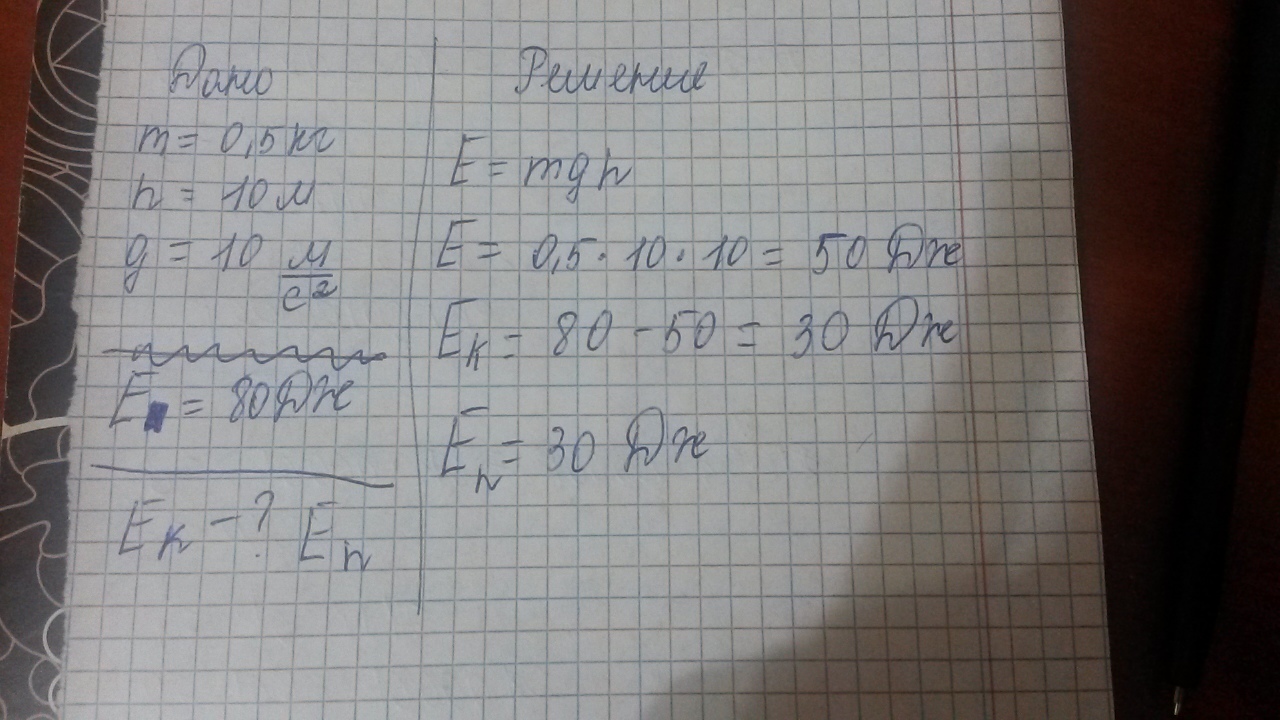 Дано
m = 0,5 кг
h = 10 м
g = 10 м/с²
E = 80 Дж
Eк - ? Eп
Решение
E = mgh
E = 0,5 · 10 · 10 = 50 Дж
Eк = 80 - 50 = 30 Дж
Eп = 30 Дж